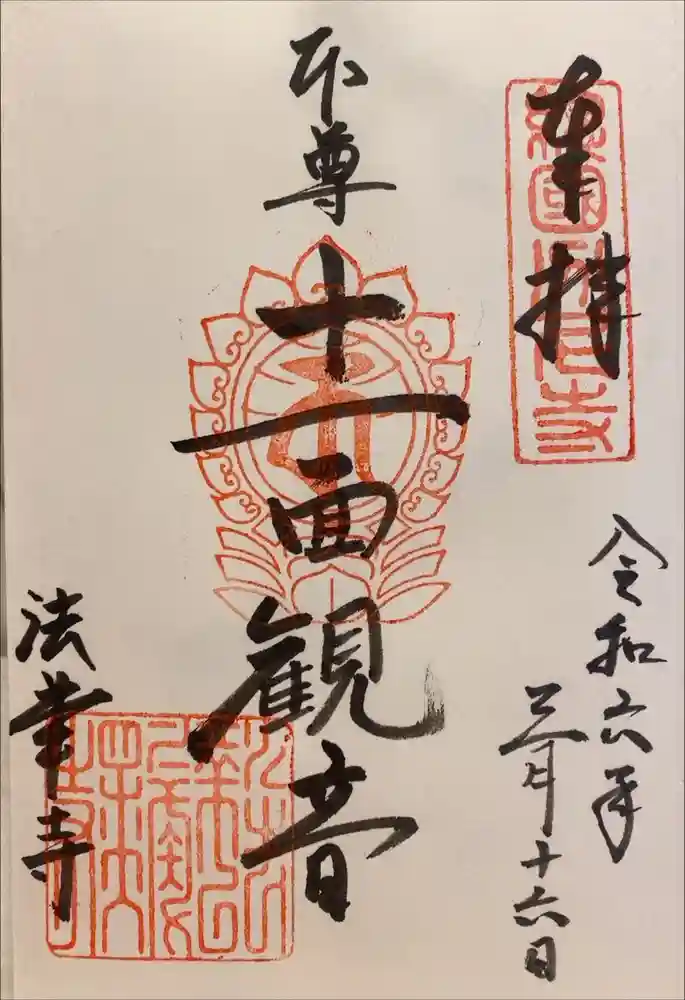 奉拝
總國分尼寺
令和六年
三月十六日
本尊
十一面観音
法華寺